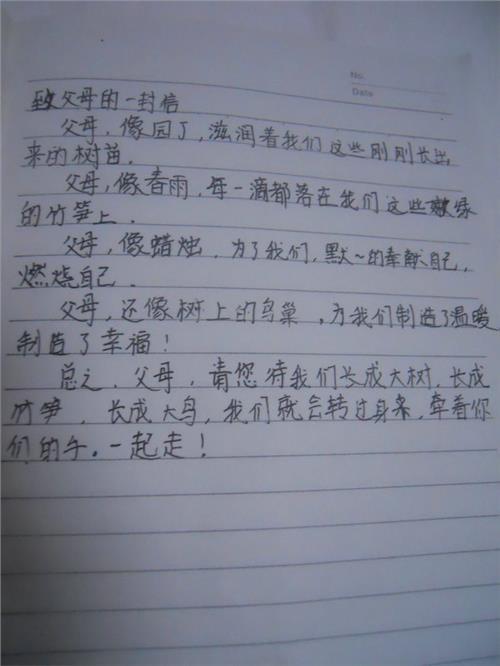 No.
Date
致父母的一封信
父母，像园丁，滋润着我们这些刚刚长出
来的树苗．
父母，像春雨，每一滴都落在我们这些嫩绿
的竹笋上．
父母，像蜡烛，为了我们，默~的奉献自己，
燃烧自己．
父母，还像树上的鸟巢，为我们制造了温暖
制造了幸福！
总之，父母，请您待我们长成大树，长成
竹笋，长成大鸟，我们就会转过身来，牵着你
们的手．一起走！